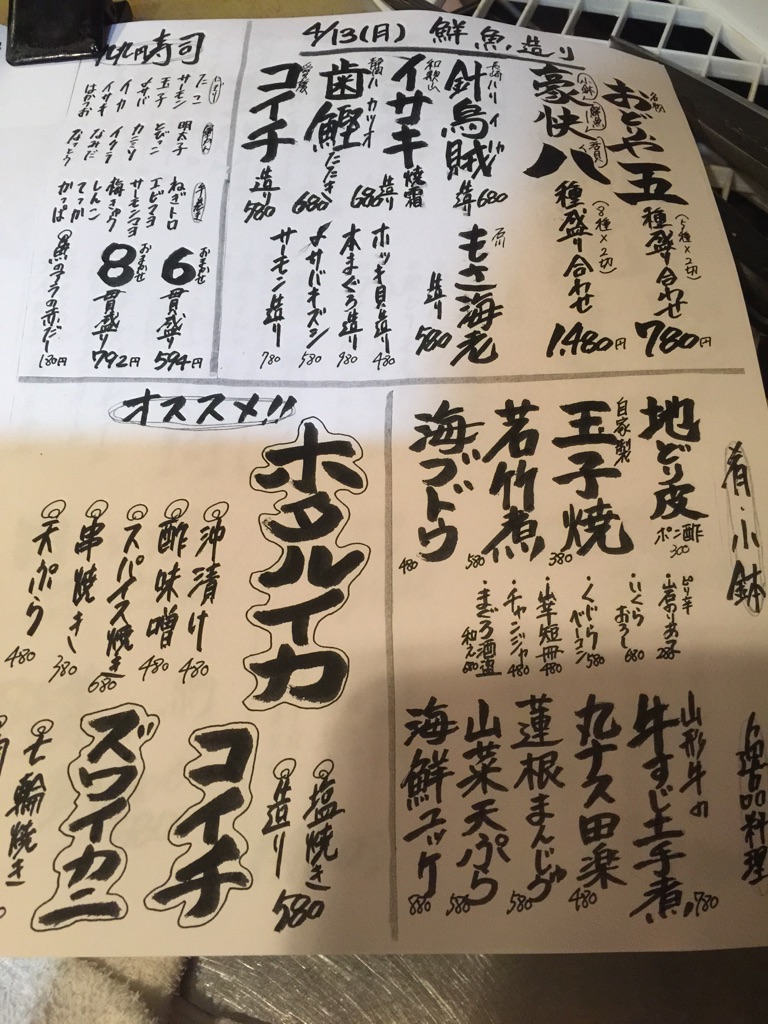 4/13(月) 鮮魚造り
名物
おどりや五種盛り合わせ
(5種×2切)
780円
小鉢 鮮魚
豪快八種盛り合わせ
(8種×2切)
1,480円
長崎ハリイカ
針烏賊
造り 680
石川
もさ海老
造り 580
和歌山
イサキ
焼霜造り 680
ハガツオ
歯鰹
たたき 680
愛媛
コイチ
造り 580
ホッキ貝造り 480
本まぐろ造り 980
〆サバキズシ 580
サーモン造り 780
九九円寿司
にぎり
たこ
サーモン
玉子
〆サバ
イカ
イサキ
はがつお
軍かん
明太子
とびっこ
カニミソ
イクラ
なみだ
なっとう
手巻き
ねぎトロ
エビマヨ
サーモンマヨ
梅きゅう
しんこ
てっか
かっぱ
おまかせ
6貫盛り
594円
おまかせ
8貫盛り
792円
魚のアラの赤だし
180円
肴・小鉢
地どり皮
ポン酢
300
自家製
玉子焼
380
若竹煮
580
海ブドウ
480
ピリ辛
・いくらおろし
680
・くじらベーコン
580
・山芋短冊
480
・チャンジャ
480
・まぐろ酒盗和え
680
一品料理
山形牛の
牛すじ土手煮
780
丸ナス田楽
480
蓮根まんじゅう
580
山菜天ぷら
580
海鮮ユッケ
880
オススメ!!
ホタルイカ
沖漬け 480
酢味噌 480
スパイス焼き 680
串焼き 380
天ぷら 480
コイチ
塩焼き
造り
580
ズワイカニ
七輪焼き